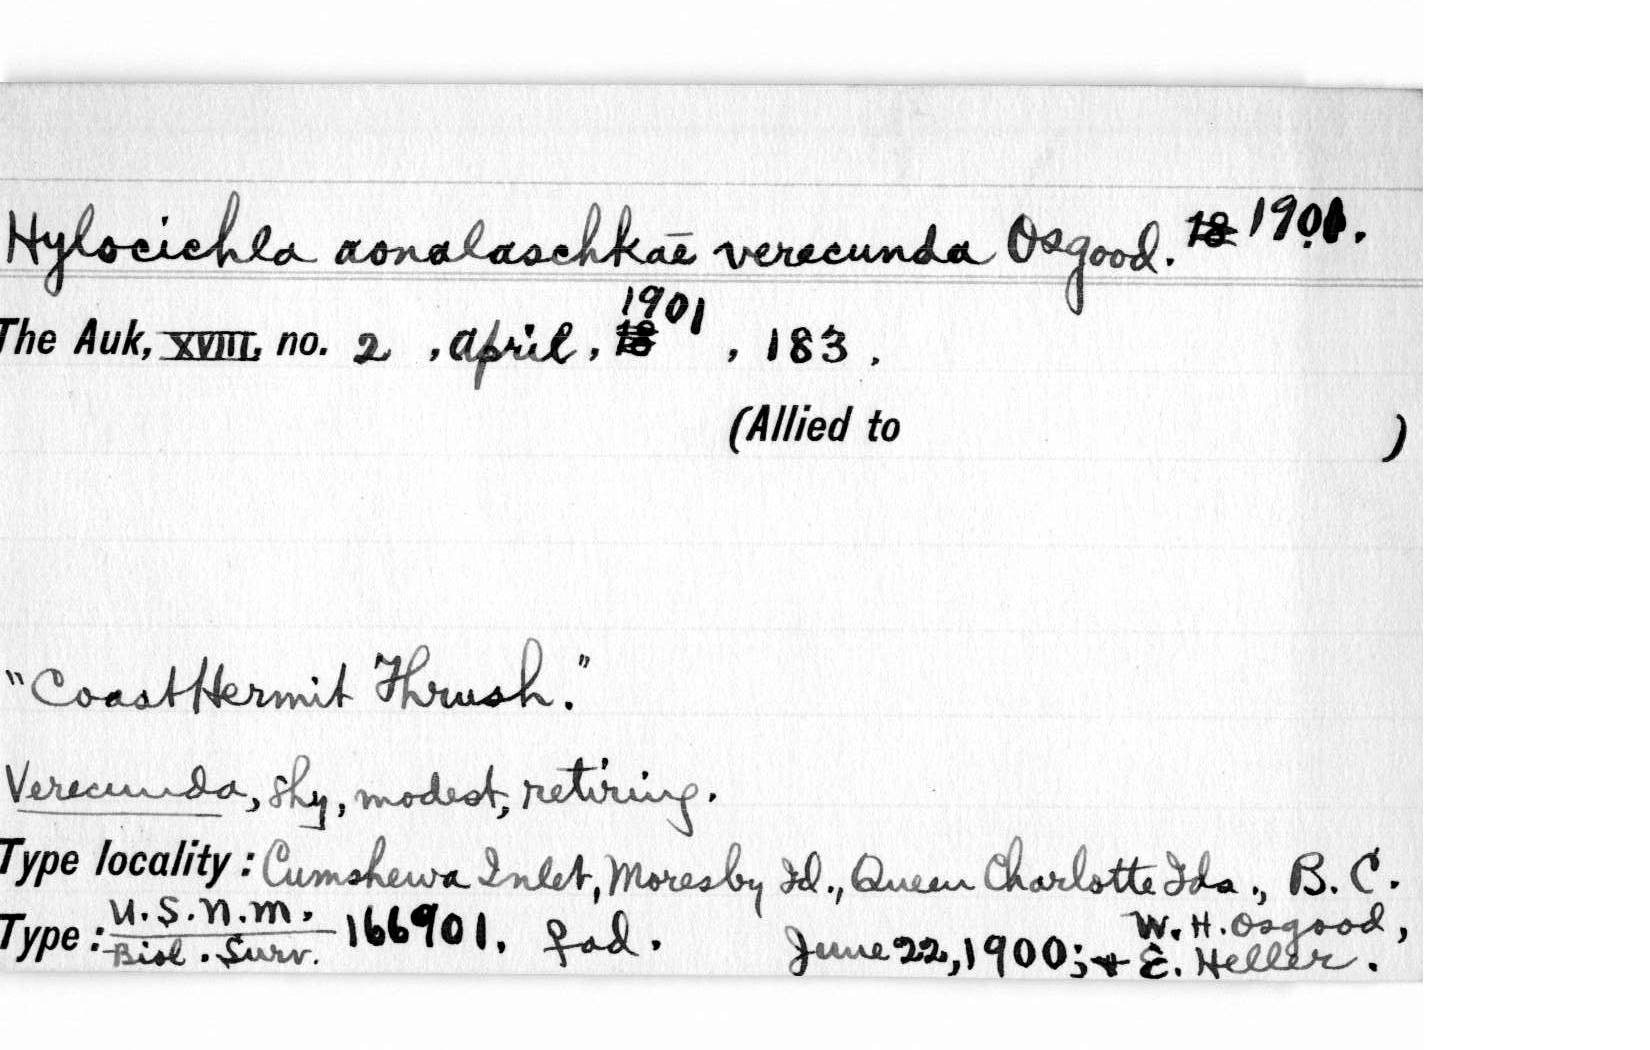 Hylocichla aonalaschkae verecunda Osgood. 18 1901.
The Auk, XVIII, no. 2, April, 18 1901, 183.
(Allied to )
"Coast Hermit Thrush."
Verecunda, shy, modest, retiring.
Type locality: Cumshewa Inlet, Moresby Id., Queen Charlotte Ids., B. C.
Type: U.S.N.M. / Biol. Surv. 166901. ♀ ad. June 22, 1900; W. H. Osgood, + E. Heller.